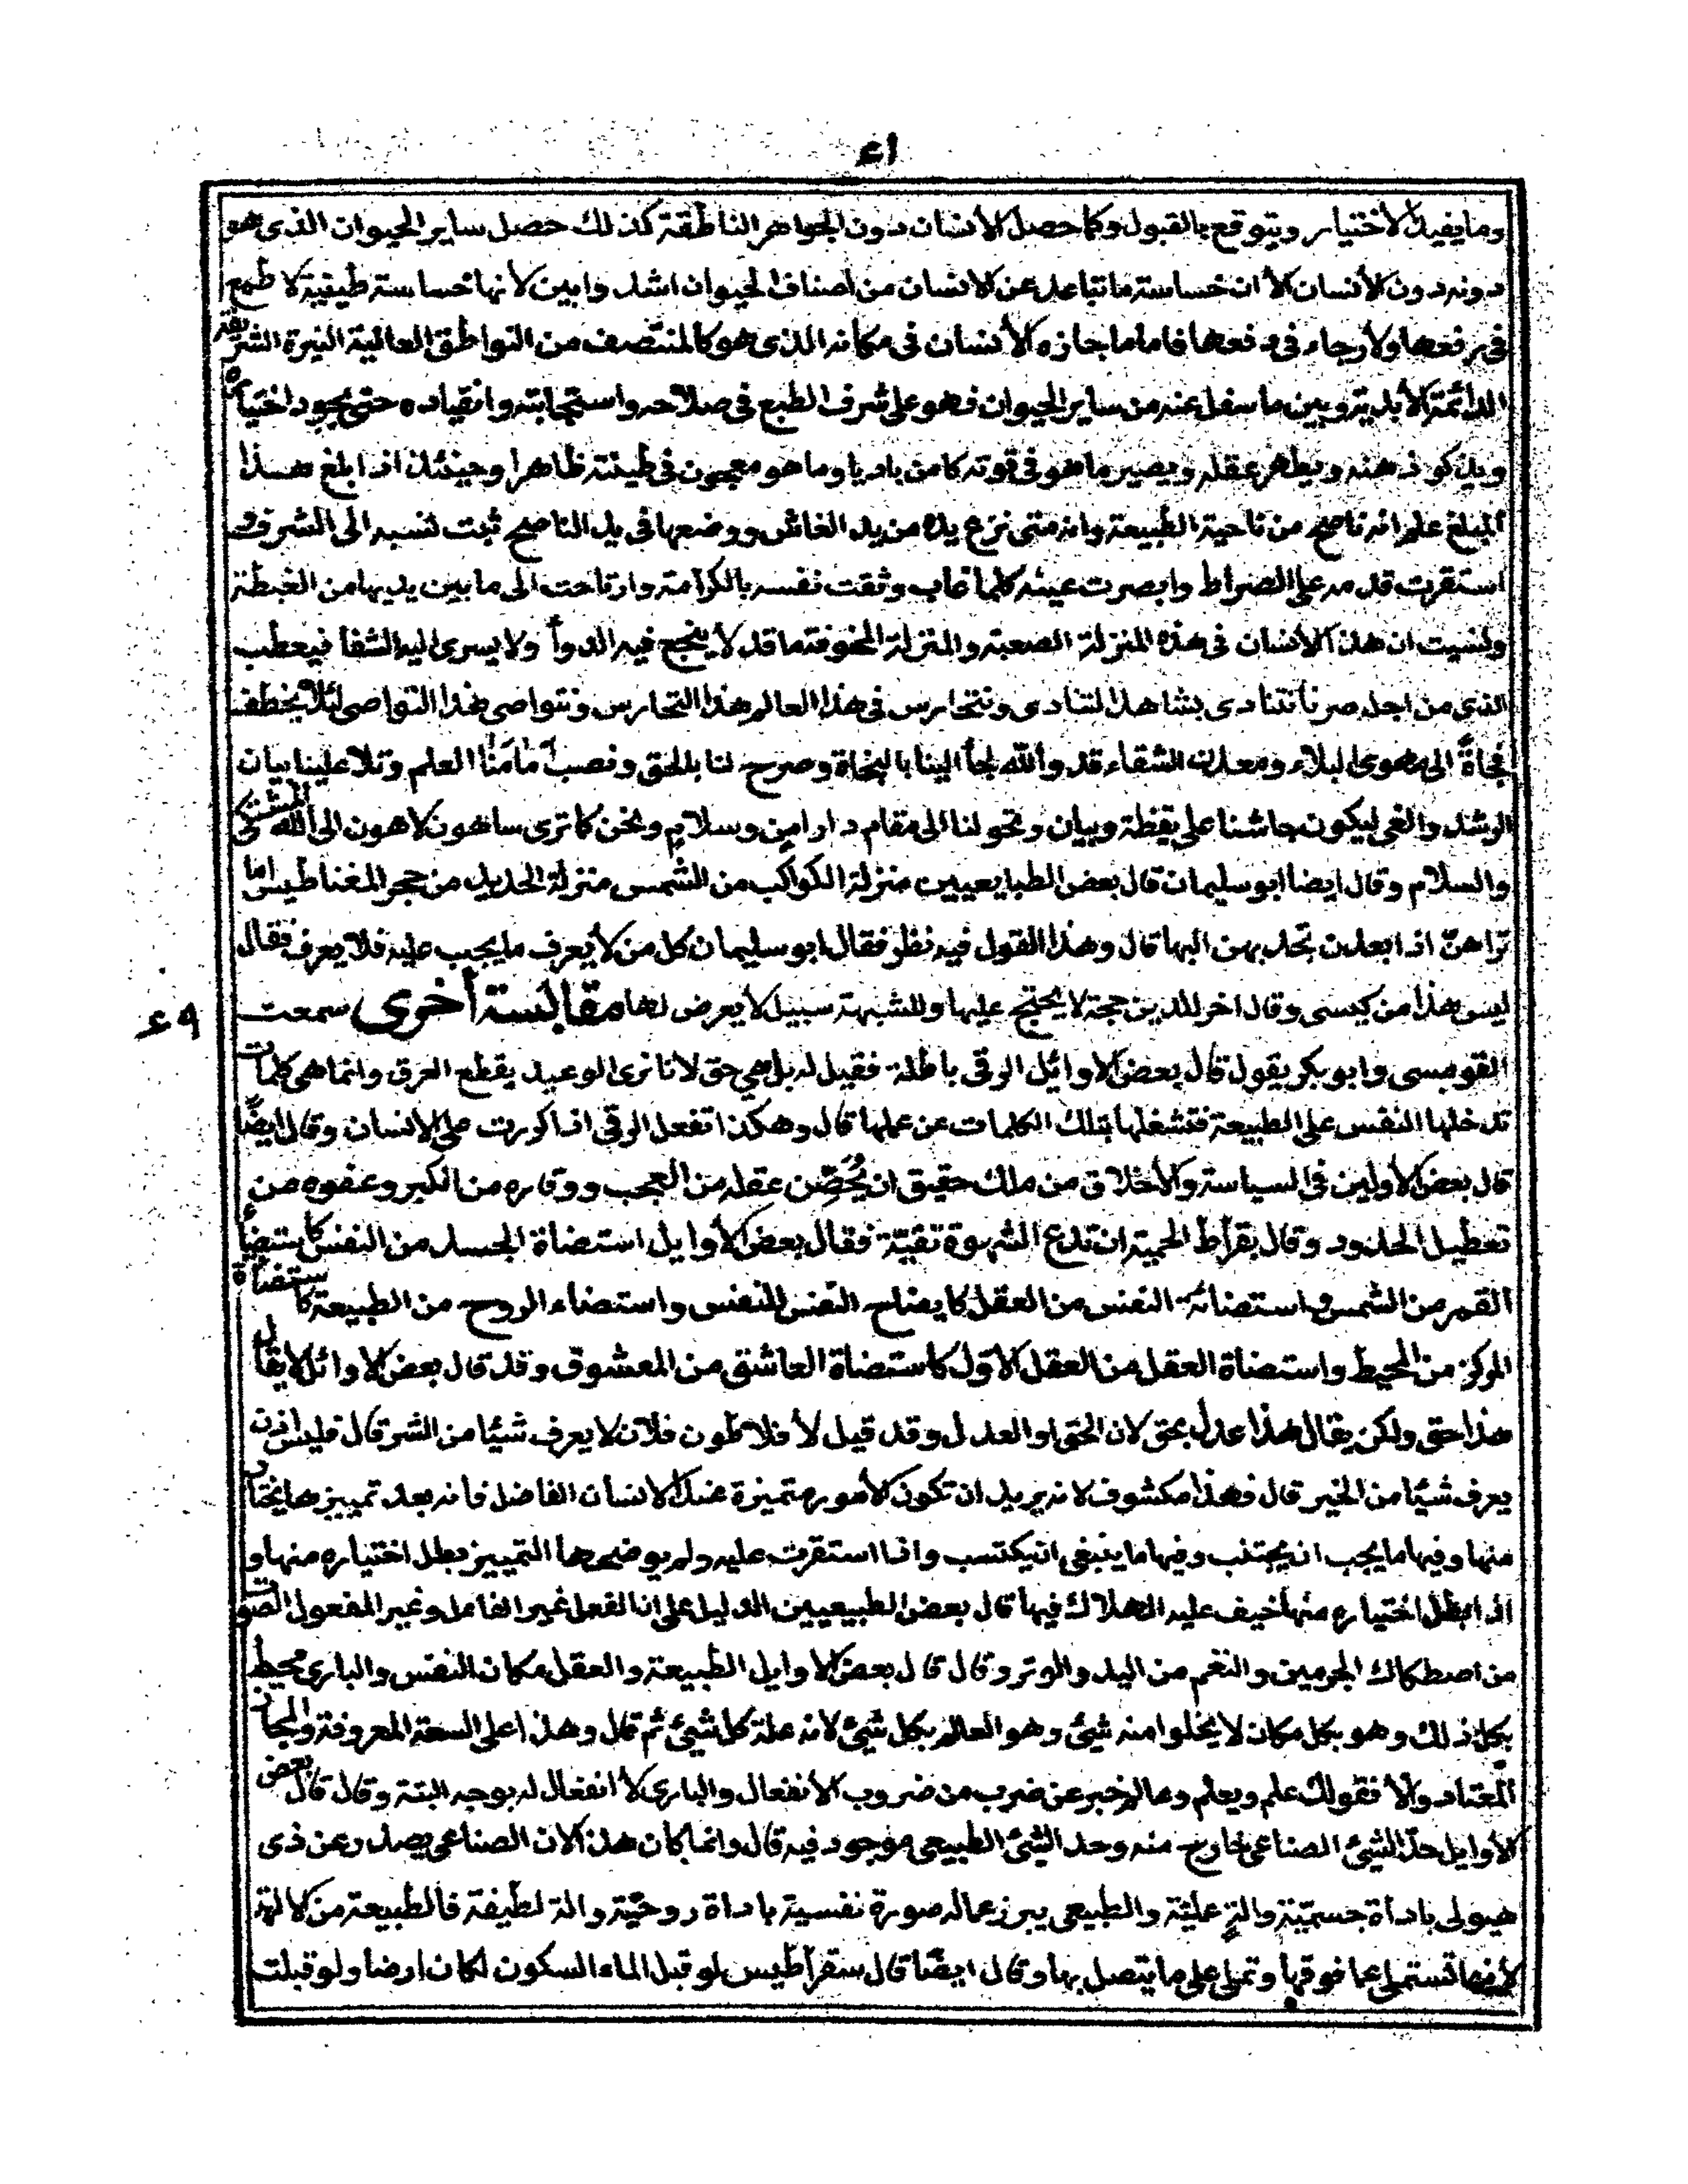 ٤١
وما يفيد الأختيار ويتوقع بالقبول وكما حصل الأنسان دون الجواهر الناطقة كذلك حصل ساير الحيوان الذى هو
دونه دون الأنسان الأ ان خساسة ما تباعد عن الانسان من اصناف الحيوان اشد وابين لأنها خساسة طينية لا طمع
فى رفعها ولأرجاء فى دفعها فاما ما جازه الأنسان فى مكانه الذى هو كالمنتصف من النواطق العالية النيرة الشريفة
الدائمة الأبدية وبين ما سفل عنه من ساير الحيوان فهو على شرف الطبع فى صلاحه واستجابته وانقياده حتى يجود اختياره
ويذكو ذهنه ويطهر عقله ويصير ما هو فى قوته كامن باديا وما هو معجون فى طينته ظاهرا وحينئذ اذا بلغ هذا
المبلغ علم انه ناصح من ناحية الطبيعة وانه متى نزع يده من يد الغاش ووضعها فى يد الناصح ثبت نسبه الى الشرف و
استقرت قدمه على الصراط وابصرت عينه كلما غاب وثقت نفسه بالكرامة وارتاحت الى ما بين يديها من الغبطة
ولنسيت ان هذا الأنسان فى هذه المنزلة الصعبة والمنزلة المخوفة ما قد لأينجح فيه الدوأ ولا يسرى اليه الشفأ فيعطب
الذى من اجله صرنا نتنادى بشاهد التنادى ونتحارس فى هذا العالم هذا التحارس ونتواصى هذا التواصى لئلا يخطف
فجاةً الى مهوى البلاء ومعدن الشقاء قد والله لجأ الينا بالنجاة وصرح لنا بالحق ونصب أمامنا العلم وتلا علينا بيان
الرشد والغى ليكون جاشنا على يقظة وبيان وتحولنا الى مقام دار امن وسلام ونحن كما ترى ساهون لاهون الى الله المشتكى
والسلام وقال ايضا ابو سليمان قال بعض الطبايعيين منزلة الكواكب من الشمس منزلة الحديد من حجر المغناطيس اما
تراهن اذا بعدن تجد بهن اليها قال وهذا القول فيه نظر فقال ابو سليمان كل من لأيعرف ما يجب عليه فلا يعرف فقال
ليس هذا من كيسى وقال اخر للدين حجة لا يحتج عليها وللشبهة سبيل لأ يعرض لها مقابسة أخرى سمعت
٤٩
القومسى وابو بكر يقول قال بعض الاوائل الرقى باطلة فقيل له بل هى حق لانا نرى الوعيد يقطع العرق وانما هى كلمات
تدخلها النفس على الطبيعة فتشغلها بتلك الكلمات عن عملها قال وهكذا تفعل الرقى اذا كررت على الانسان وقال ايضًا
قال بعض الأولين فى السياسة والأخلاق من ملك حقيق ان يُحَصِّن عقله من العجب ووقاره من الكبر وعفوه من
تعطيل الحدود وقال بقراط الحمية ان تدع الشهوة تقيّة فقال بعض الأوايل استضاة الجسد من النفس كما يستضيأ
القمر من الشمس واستضائة النفس من العقل كا يضاح النفس للنفس واستضاء الروح من الطبيعة كاستضاة
المركز من المحيط واستضاة العقل من العقل الاول كاستضاة العاشق من المعشوق وقد قال بعض الاوائل لا يقال
هذا حق ولكن يقال هذا عدل بحق لان الحق اوالعدل وقد قيل لأ فلاطون فلان لا يعرف شيئا من الشر قال فليس اذن
يعرف شيئا من الخير قال فهذا مكشوف لانه يريد ان تكون الأمور متميزة عند الانسان الفاضل فانه بعد تمييزها يختار
منها وفيها ما يجب ان يجتنب وفيها ما ينبغى ان يكتسب واذا استقرت عليه ولم يوضحها التمييز بطل اختياره منها و
اذا بطل اختياره منها خيف عليه الهلاك فيها قال بعض الطبيعيين الدليل على ان الفعل غير الفاعل وغير المفعول الصوت
من اصطكاك الجرمين والنغم من اليد والوتر وقال قال بعض الاوايل الطبيعة والعقل مكان النفس والبارى محيط
بكل ذلك وهو بكل مكان لا يخلوا منه شيئ وهو العالم بكل شيئ لانه علة كل شيئ ثم قال وهذا على السعة المعروفة والمجاز
المعتاد والأ فقولك علم ويعلم وعالم خبر عن ضرب من ضروب الأنفعال والبارى لأ انفعال له بوجه البتة وقال قال بعض
الأوايل حدّ الشيئ الصناعى خارج منه وحد الشيئ الطبيعى موجود فيه قال وانما كان هذا لان الصناعى يصدر عن ذى
هيولى باداة جسميّة والةٍ عليّة والطبيعى يبرز عماله صورة نفسية باداة روحيّة والة لطيفة فالطبيعة من كالهة
لأنها تستملى عما فوقها وتملى على ما يتصل بها وقال ايضًا قال سقراطيس لو قبل الماء السكون لكان ارضا ولو قبلت